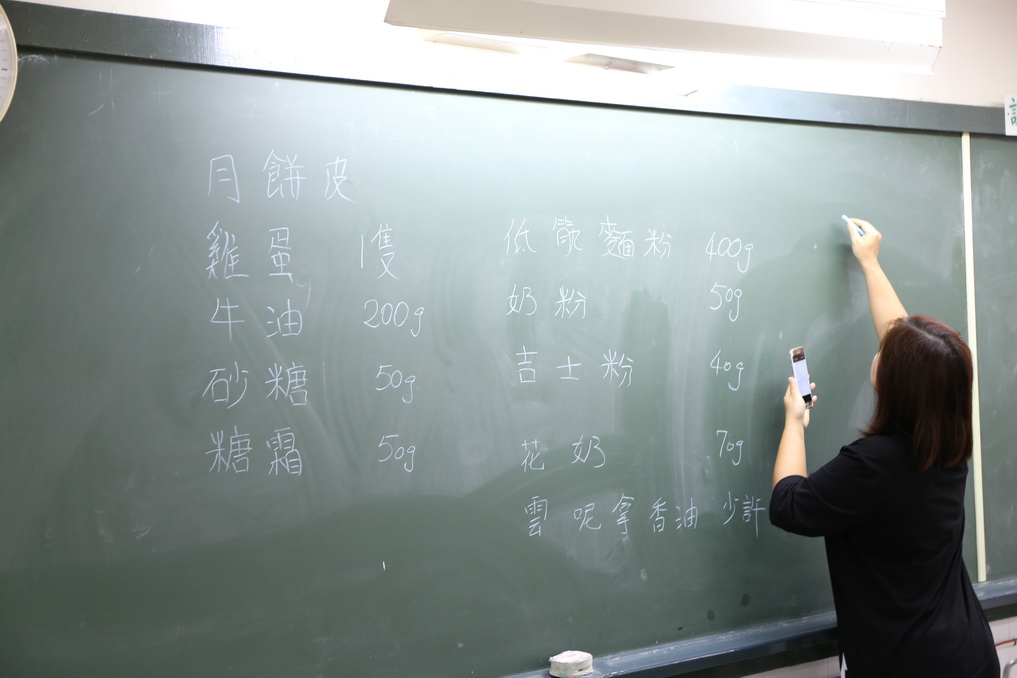 月餅皮
雞蛋 1隻
牛油 200g
砂糖 50g
糖霜 50g
低筋麵粉 400g
奶粉 50g
吉士粉 40g
花奶 70g
雲呢拿香油 少許